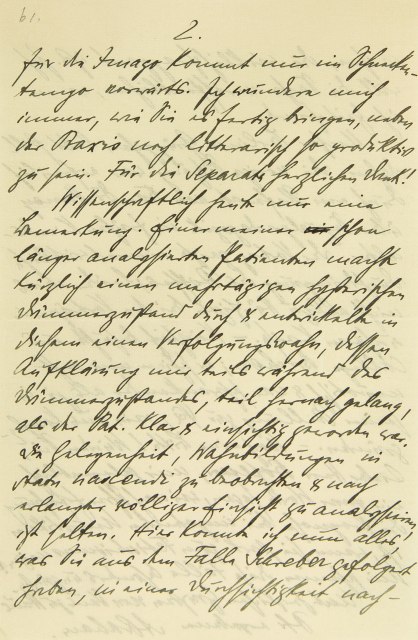 61.
2.
für die Imago kommt nur im Schnecken-
tempo vorwärts. Ich wundere mich
immer, wie Sie es fertig bringen, neben
der Praxis noch litterarisch so produktiv
zu sein. Für die Separata herzlichen Dank!
Wissenschaftlich heute nur eine
Bemerkung. Einer meiner schon
länger analysierten Patienten machte
kürzlich einen mehrtägigen hysterischen
Dämmerzustand durch & entwickelte in
diesem einen Verfolgungswahn, dessen
Aufklärung mir teils während des
Dämmerzustandes, teils hernach gelang,
als der Pat. klar & einsichtig geworden war.
Die Gelegenheit, Wahnbildungen in
statu nascendi zu beobachten & nach
erlangter völliger Einsicht zu analysieren,
ist selten. Hier konnte ich nun alles,
was Sie aus dem Falle Schreber gefolgert
haben, in einer Durchsichtigkeit nach-